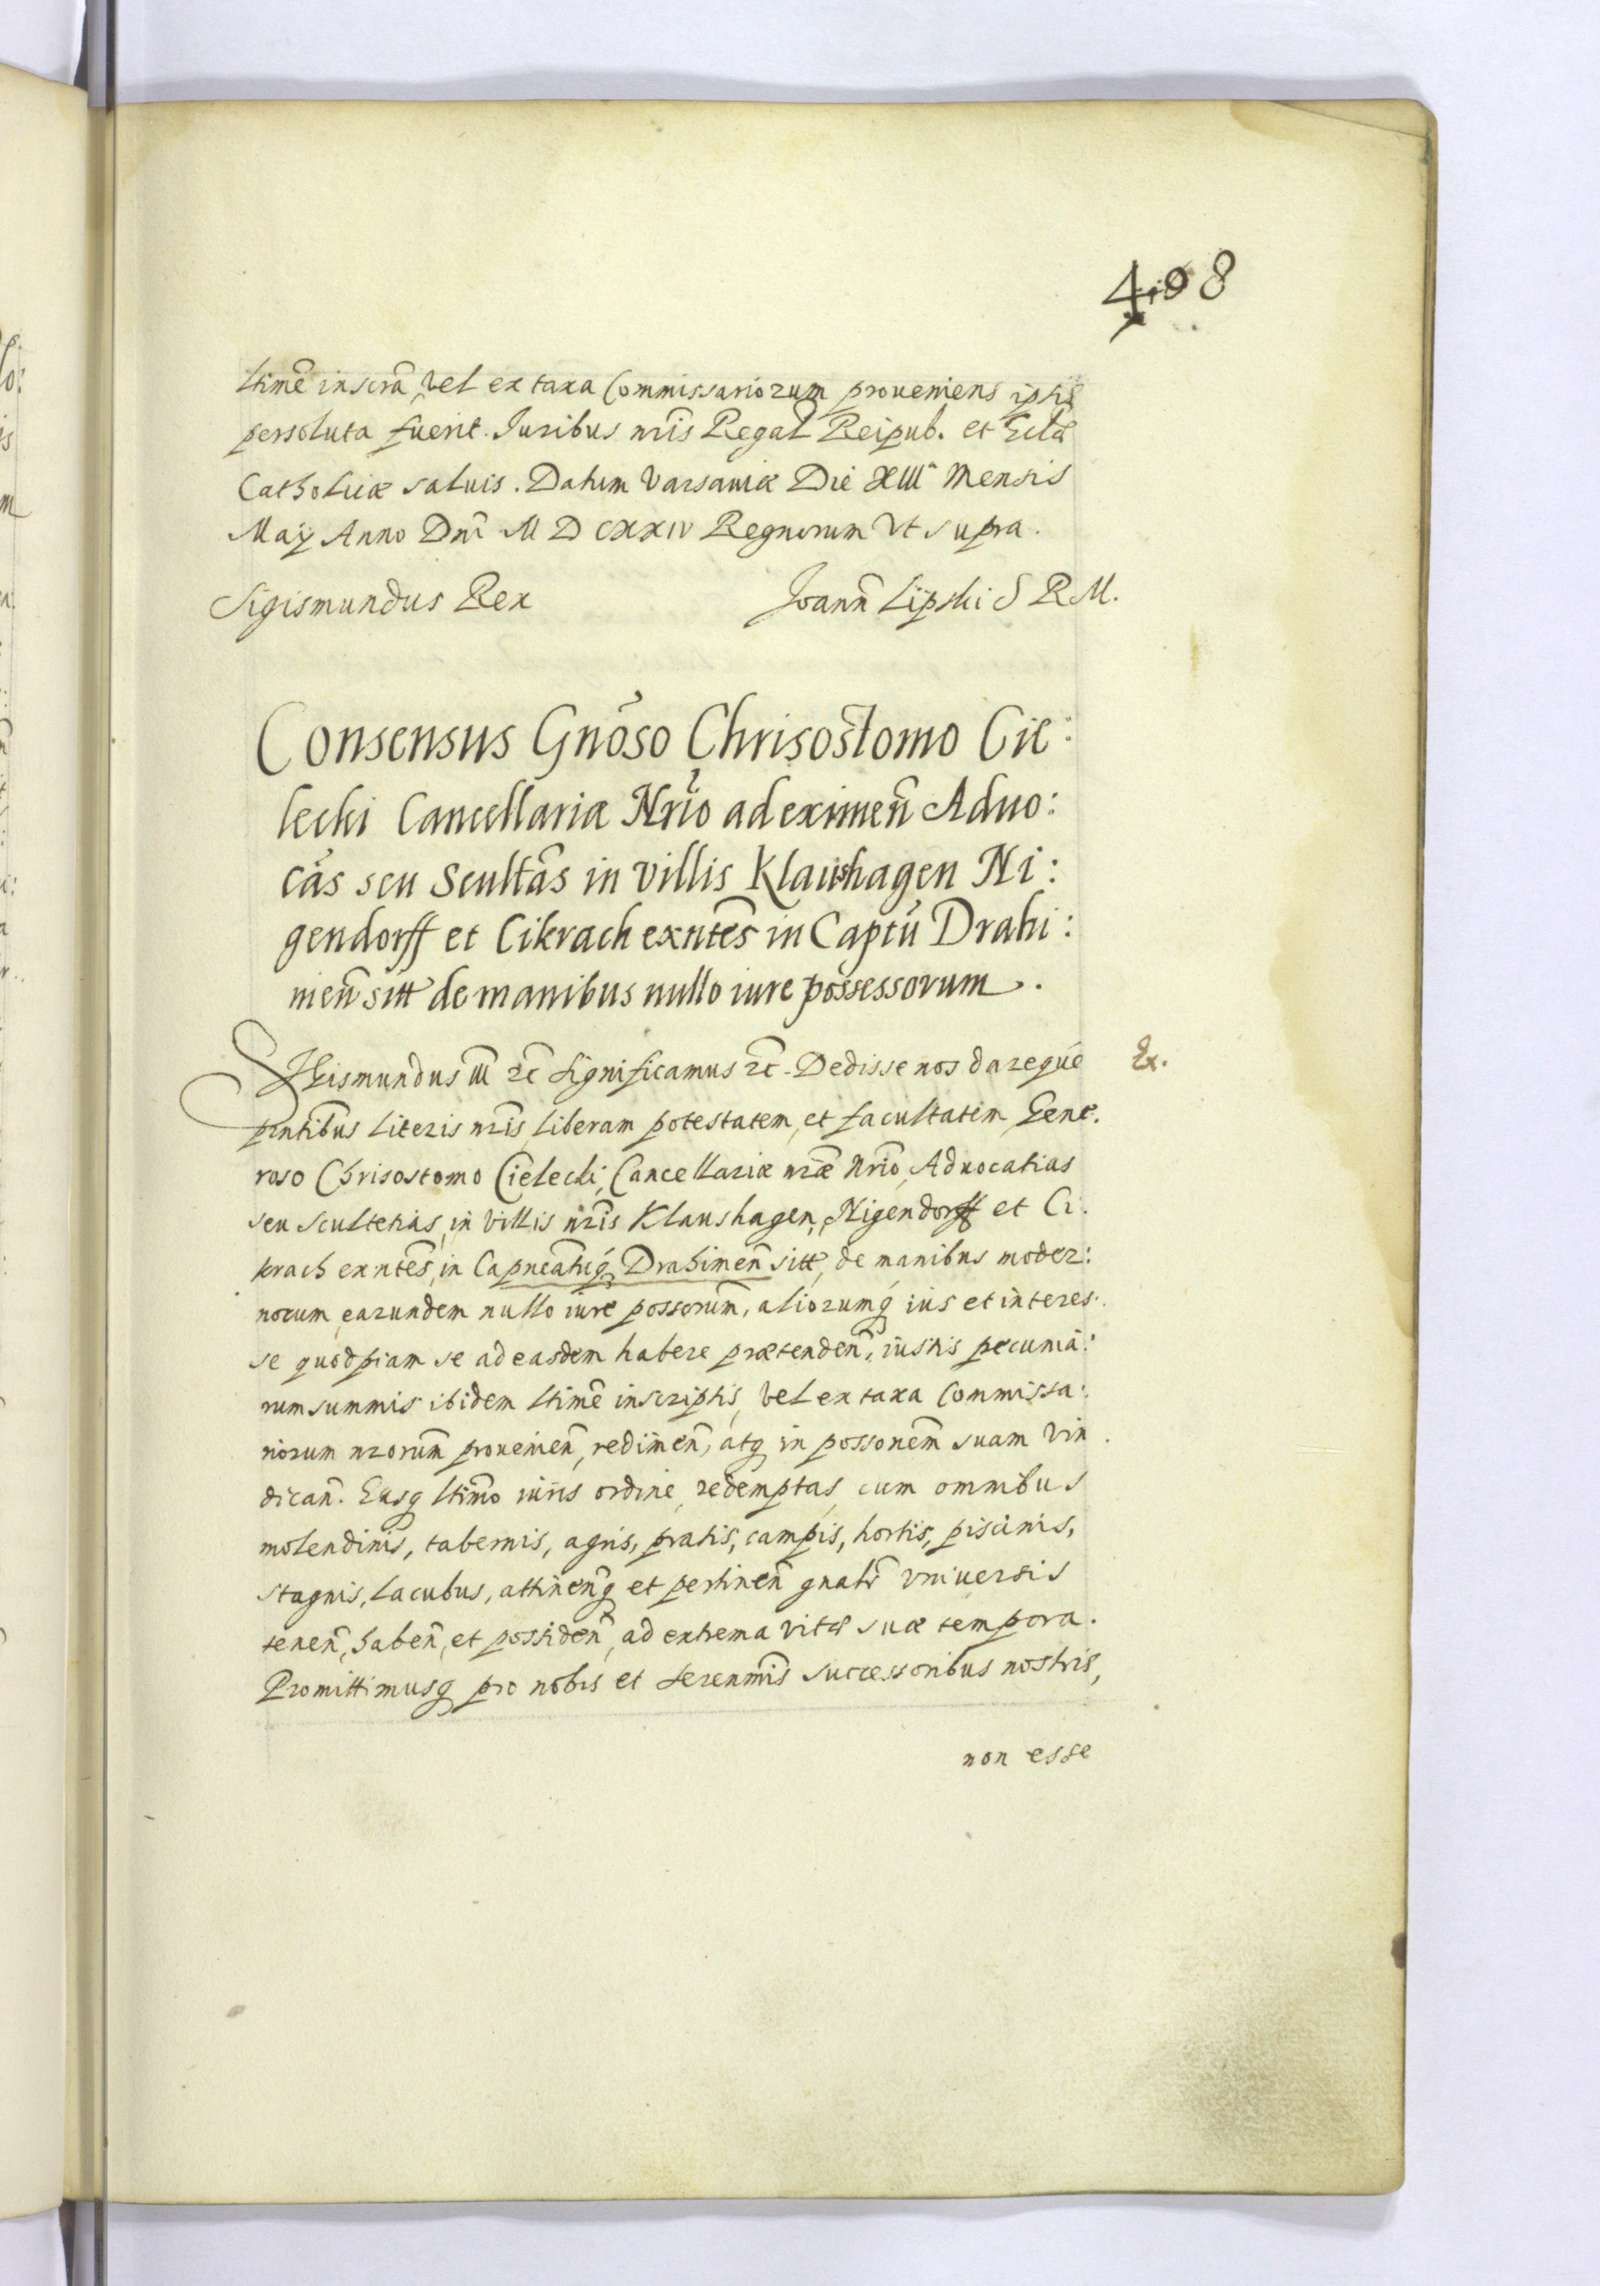 498
ltimẽ inscrã, vel ex taxa Commissariorum proueniens ipsis
persoluta fuerit. Juribus nr̃is Regal Reipub. et Eclæ
Catholicæ saluis. Datum Varsauiæ Die XIIIa Mensis
Maÿ Anno Dnĩ M D CXXIV Regnorum vt supra.
Sigismundus Rex Joann̄ Lipski S R M.
Consensus Gnõso Chrisostomo Cie:
lecki Cancellariæ Nrĩo ad eximen̄ Aduo:
cãs seu Scultãs in villis Klaushagen Ni:
gendorff et Cikrach exñtẽs in Captũ Drahi:
men̄ sitt de manibus nullo iure possessorum.
Sigismundus III etc̃ Significamus etc̃. Dedisse nos dareque
pñtibus literis nr̃is, liberam potestatem, et facultatem, Gene.
roso Chrisostomo Cielecki, Cancellariæ nr̃æ Nrĩo, Aduocatias
seu scultetias, in villis nr̃is Klaushagen, Nigendorff et Ci.
krach exñtẽs, in Capneatũq̃ Drahimen̄ sitt, de manibus moder:
norum, earundem nullo iure possorum̃, aliorumq̃ ius et interes.
se quodpiam se ad easdem habere prætenden̄, iustis pecunia:
rum summis ibidem ltimẽ inscriptis, vel ex taxa Commissa:
riorum nrorum̃ prouenien̄, redimen̄, atq̃ in possonem̃ suam vin.
dican̄. Easq̃ ltimo iuris ordine, redemptas, cum omnibus
molendinis, tabernis, agris, pratis, campis, hortis, piscinis,
stagnis, lacubus, attinen̄q̃ et pertinen̄ gnalr̃ vniuersis
tenen̄, haben̄, et possiden̄, ad extrema vitæ suæ tempora.
Promittimusq̃ pro nobis et Serenmis̃ successoribus nostris,
non esse
Ex.